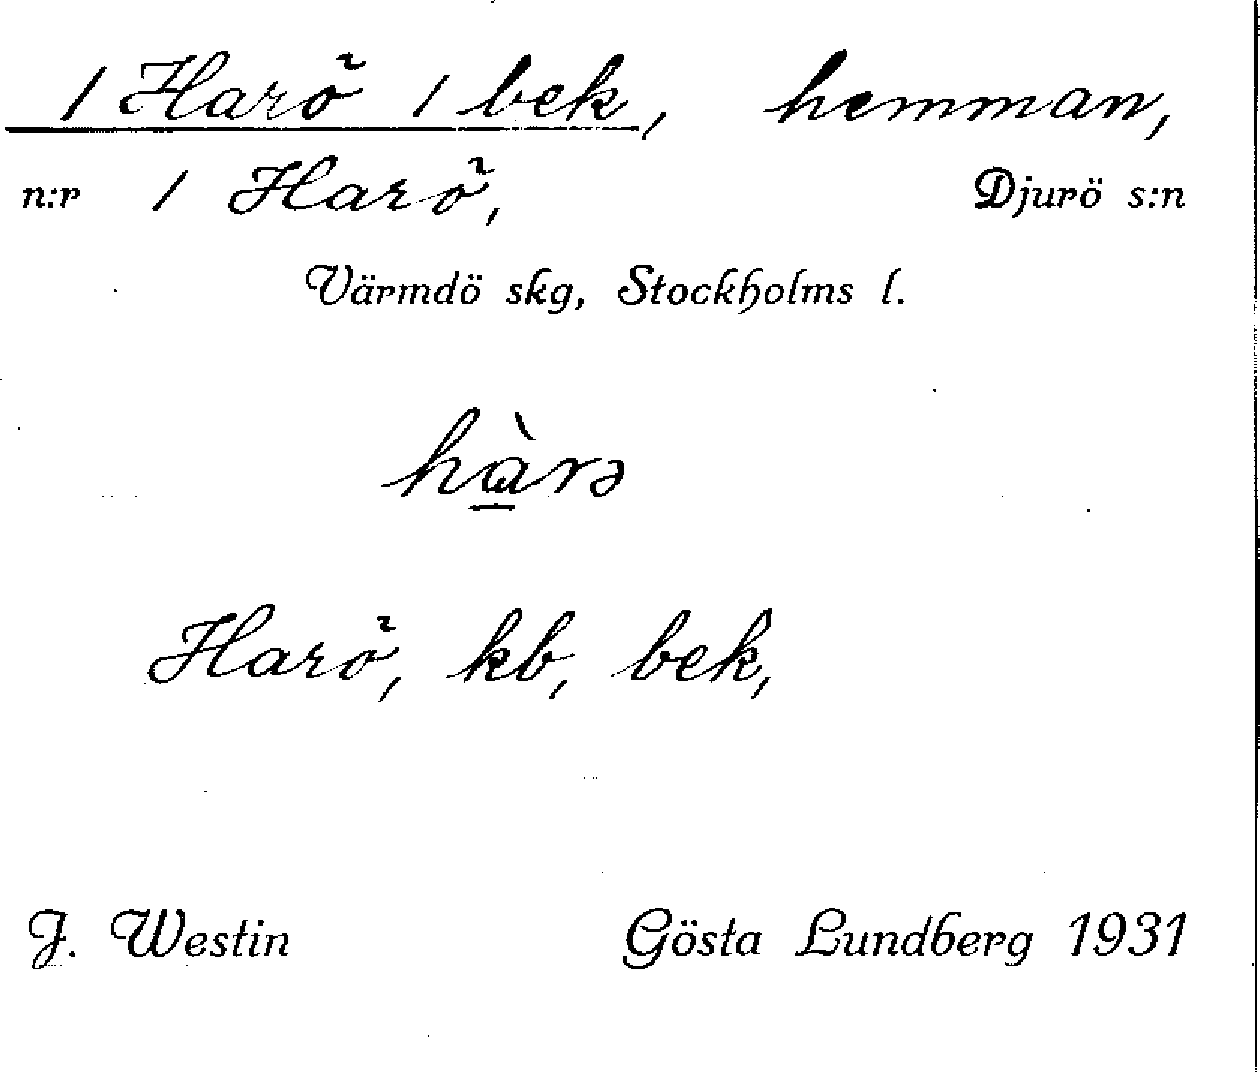 1 Harö 1 bek, hemman,
n:r 1 Harö, Djurö s:n
Värmdö skg, Stockholms l.
hà̱rə
Harö, kb, bek,
J. Westin Gösta Lundberg 1931